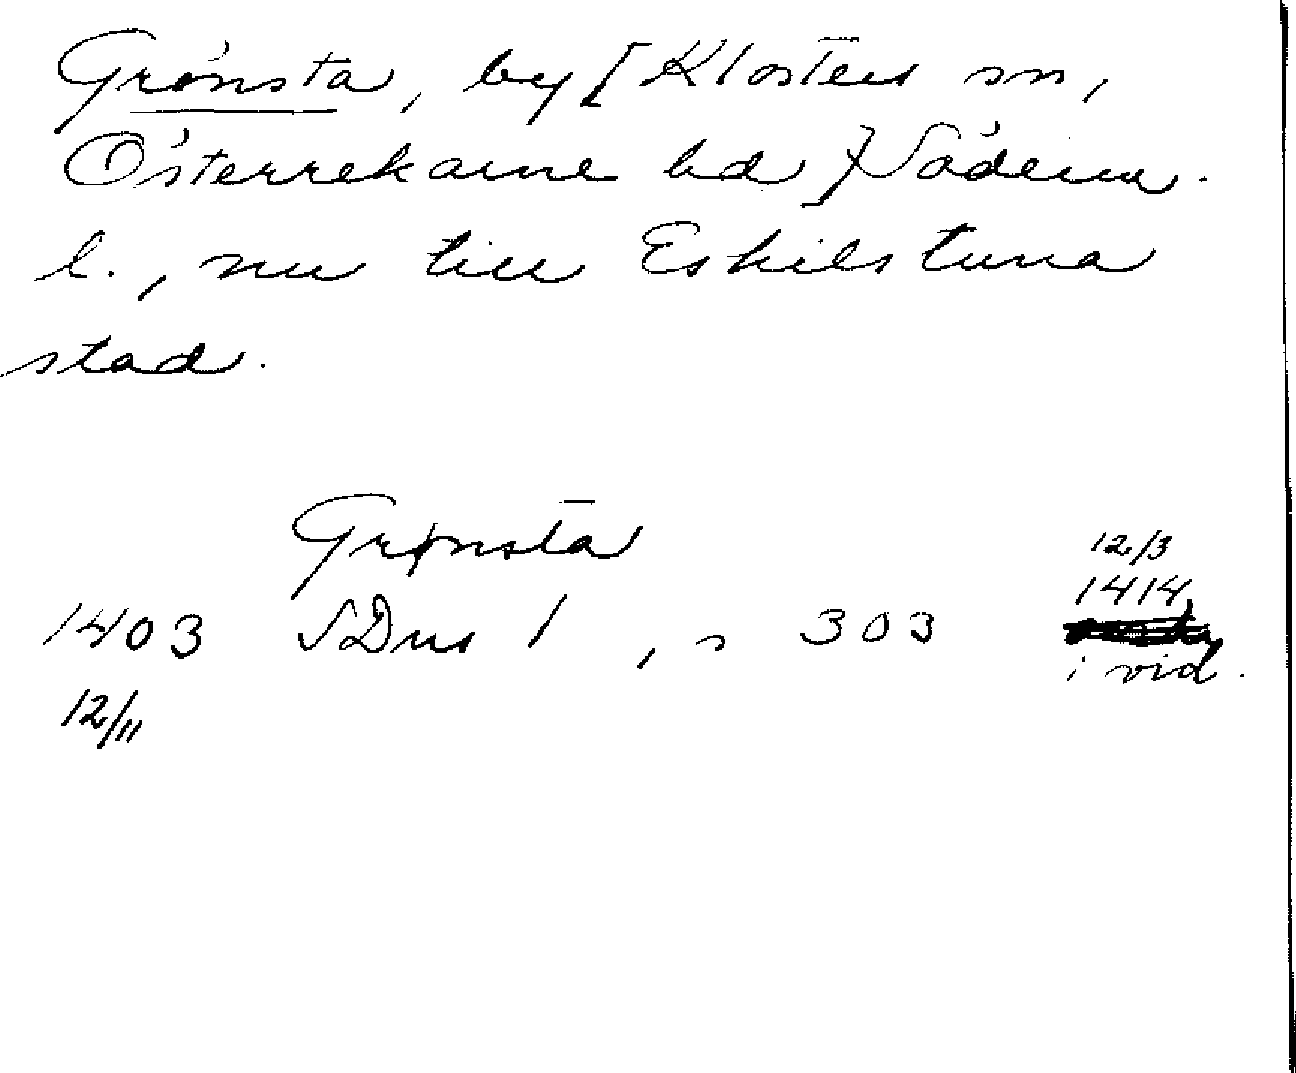 Grönsta, by [Klosters sn,
Österrekarne hd] Söderm.
l., nu till Eskilstuna
stad.
Grønsta
12/3
1403 SDns 1, s 303 1414
i vid.
12/11